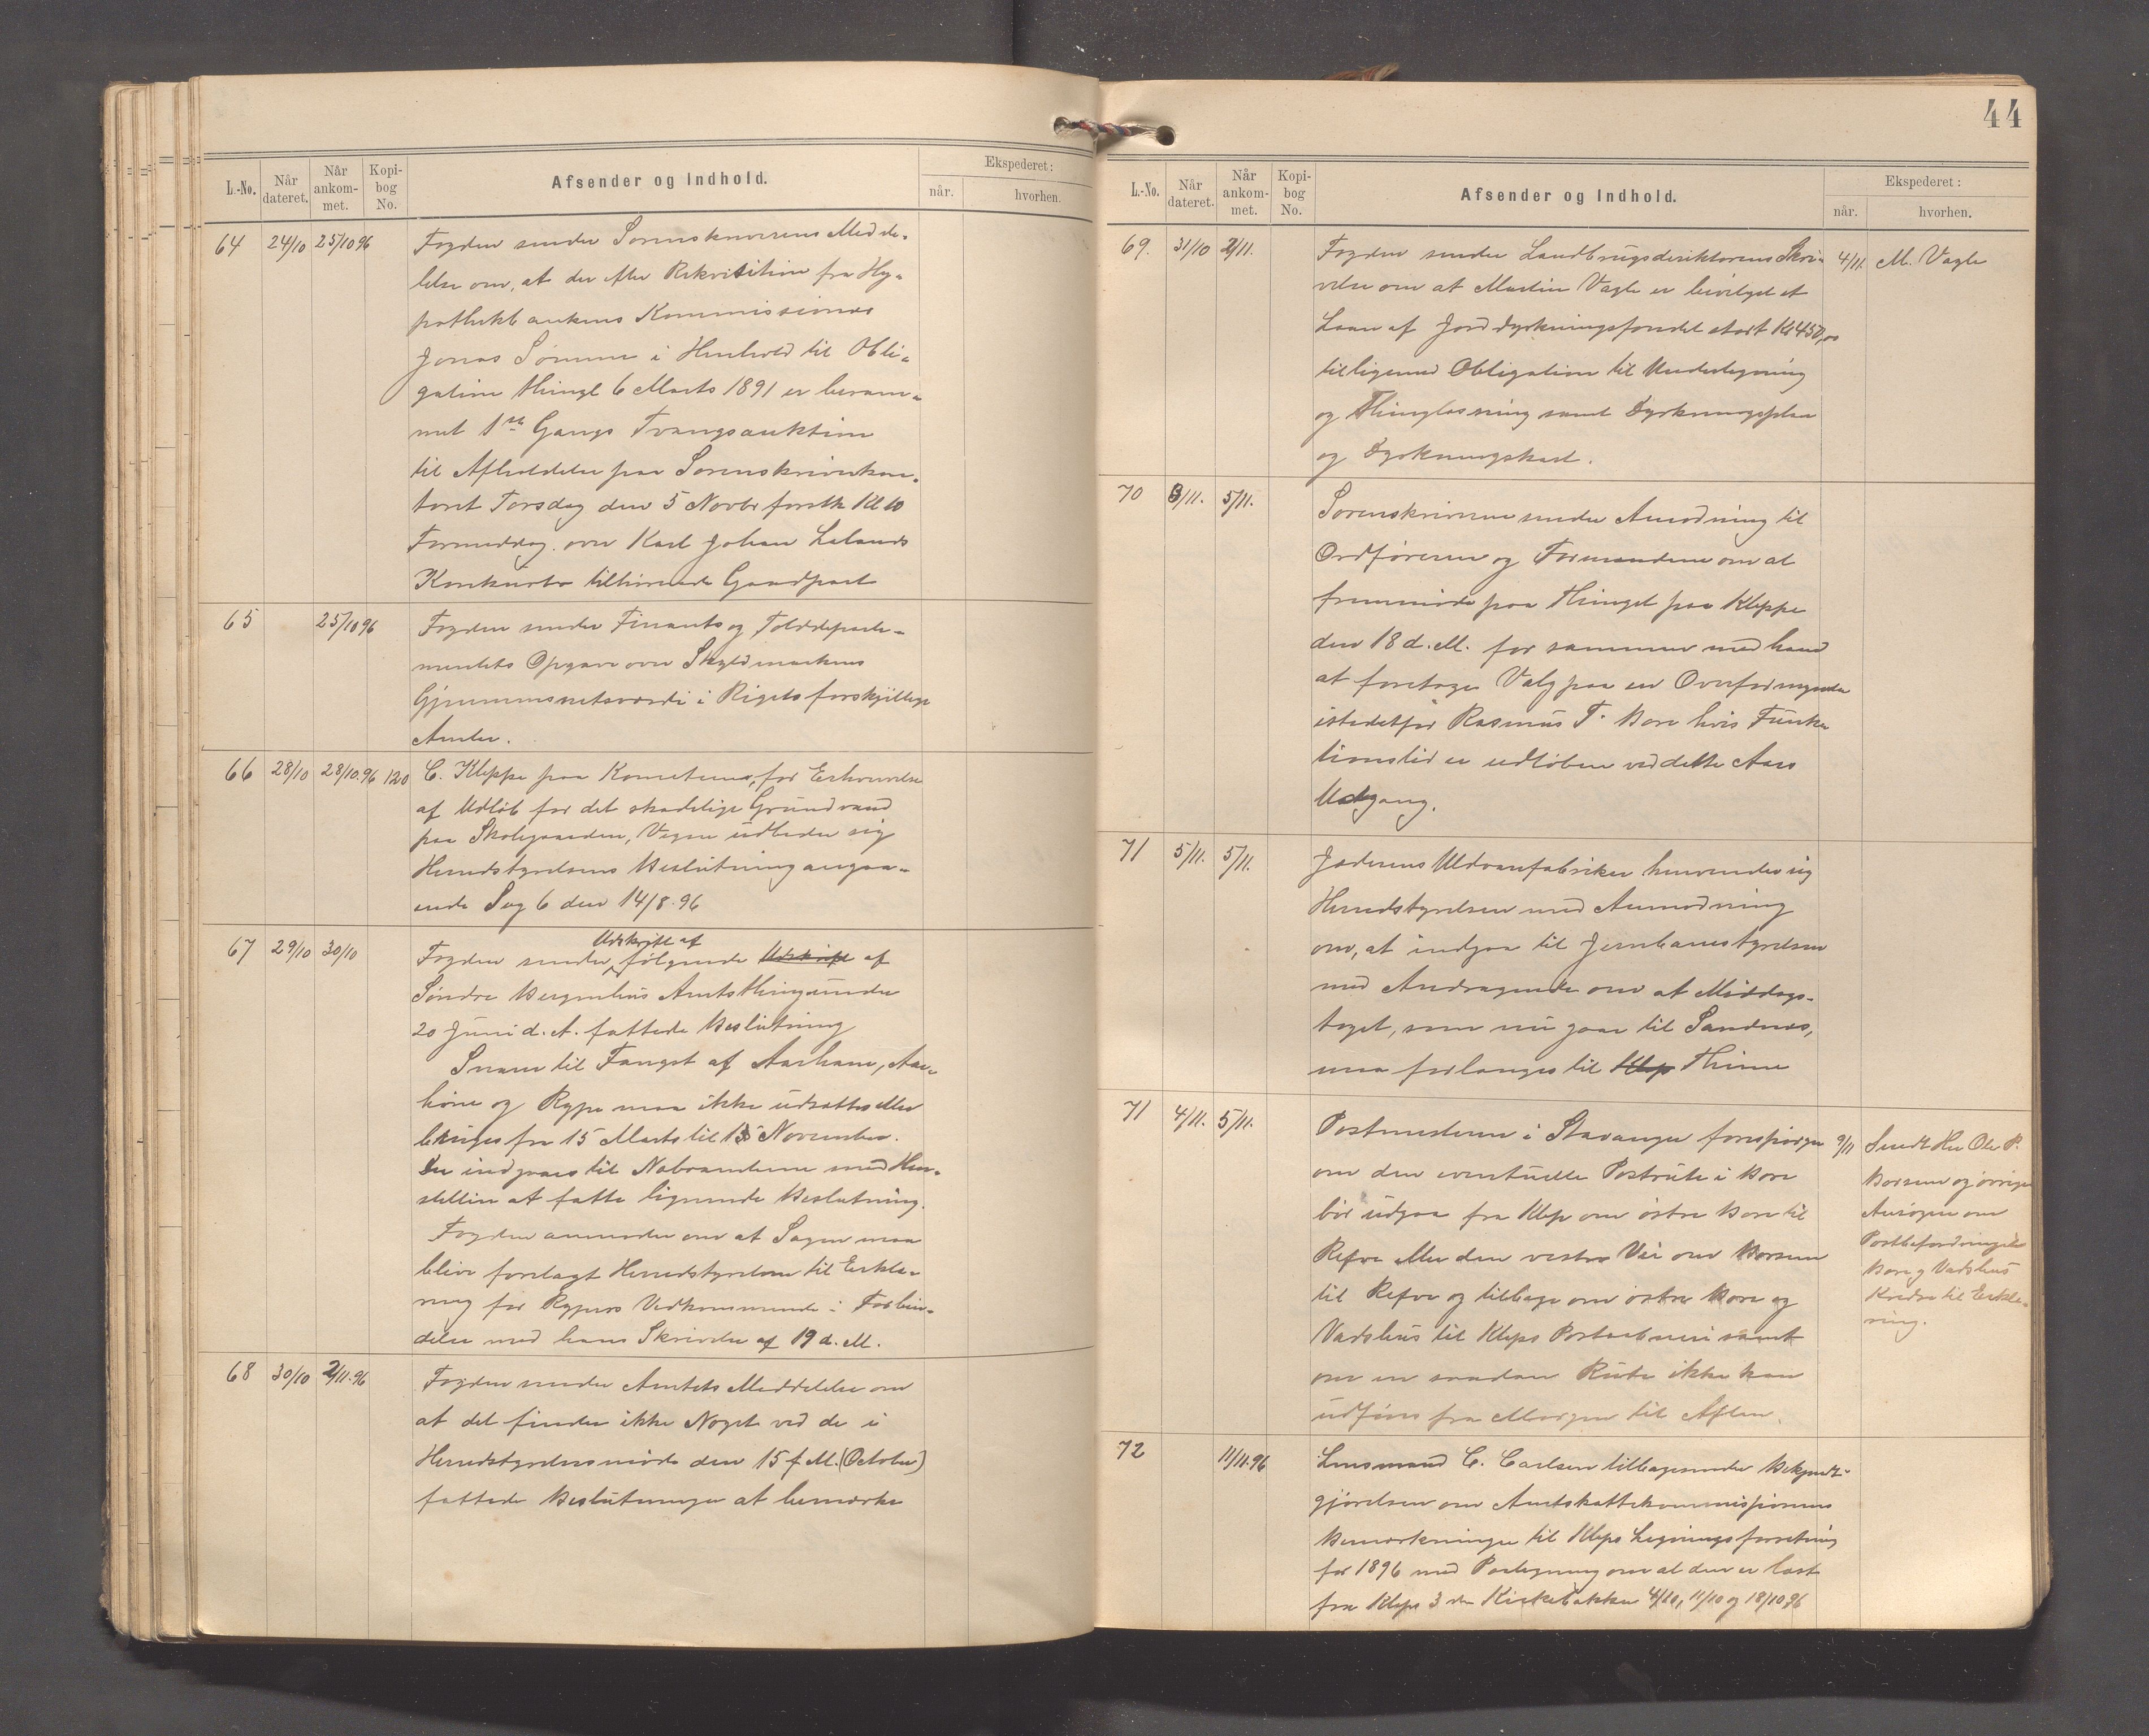 L.-No. Når dateret. Når ankom-met. Kopi-bog No. Afsender og Indhold. Ekspederet: når. hvorhen.
64 24/10 25/10 96 Fogden sender Sorenskriverens Medde-
lelse om, at der efter Rekvisition fra Hy-
pothekbankens Kommissionær
Jonas Sømme i Henhold til Obli-
gation thingl 6 Marts 1891 er beram-
met 1ste Gangs Tvangsauktion
til Afholdelse paa Sorenskriverkon-
toret Torsdag den 5 Novbr førstk Kl 10
Formiddag over Karl Johan Lalands
Konkursbo tilhørende Gaardpart
65 25/10 96 Fogden sender Finants og Tolddeparte-
mentets Opgave over Skyldmarkens
Gjennemsnitsværdi i Rigets forskjellige
Amter.
66 28/10 28/10.96 120 C. Kleppe paa Komiteens, for Erhvervelse
af Udløb for det skadelige Grundvand
paa Skolegaarden, Vegne udbeder sig
Herredstyrelsens Beslutning angaa-
ende Sag 6 den 14/8.96
67 29/10 30/10 Fogden sender Udskrift af følgende Udskrift af
Søndre Bergenhus Amtsthing under
20 Juni d. A. fattede Beslutning
Snarer til Fangst af Aarhane, Aar-
høne og Rype maa ikke udsættes eller
bruges fra 15 Marts til 15 November.
Der indgaaes til Naboamterne med Hen-
stillen at fatte lignende Beslutning.
Fogden anmoder om at Sagen maa
blive forelagt Herredstyrelsen til Erklæ-
ring for Rypers Vedkommende i Forbin-
delse med hans Skrivelse af 19 d. M.
68 30/10 2/11.96 Fogden sender Amtets Meddelelse om
at det finder ikke Noget ved de i
Herredstyrelsesmøde den 15 f. M. (October)
fattede Beslutninger at bemærke
44
L.-No. Når dateret. Når ankom-met. Kopi-bog No. Afsender og Indhold. Ekspederet: når. hvorhen.
69. 31/10 2/11. Fogden sender Landbrugsdirektørens Skri- 4/11. M. Vagle
velse om at Martin Vagle er bevilget et
Laan af Jorddyrkningsfondet stort Kr 450,00
tilligemed Obligation til Underlegning
og Thinglæsning samt Dyrkningsplan
og Dyrkningskart.
70 3/11. 5/11. Sorenskriveren sender Anmodning til
Ordføreren og Formændene om at
fremmøde paa Thinget paa Kleppe
den 18 d. M. for sammen med ham
at foretage Valg paa en Overformynder
istedetfor Rasmus T. Bore hvis Funk-
tionstid er udløben ved dette Aars
Udgang.
71 5/11. 5/11. Jæderens Uldvarefabriker henvender sig
Herredstyrelsen med Anmodning
om, at indgaa til Jernbanestyrelsen
med Andragende om at Middags-
toget, som nu gaar til Sandnes,
maa forlænges til Klep Thime
71 4/11. 5/11. Postmesteren i Stavanger forespørger 9/11 Sendt Hr Ole P.
om den eventuelle Postrute i Bore Borsen og øvrige
bør udgaa fra Klep om østre Bore til Ansøgere om
Refve eller den vestre Vei om Borsen Postbefordringen
til Refve og tilbage om østre Bore og Bore og Vadshus
Vadshus til Kleps Postaabneri samt Kredse til Erklæ-
om en saadan Rute ikke kan ring.
udføres fra Morgen til Aften.
72 11/11.96 Lensmand C. Carlsen tilbagesender Bekjendt-
gjørelsen om Amtskattekommissionens
Bemærkninger til Kleps Ligningsforretning
for 1896 med Paategning om at den er læst
fra Kleps 3 de Kirkebakker 4/10, 11/10 og 18/10 96